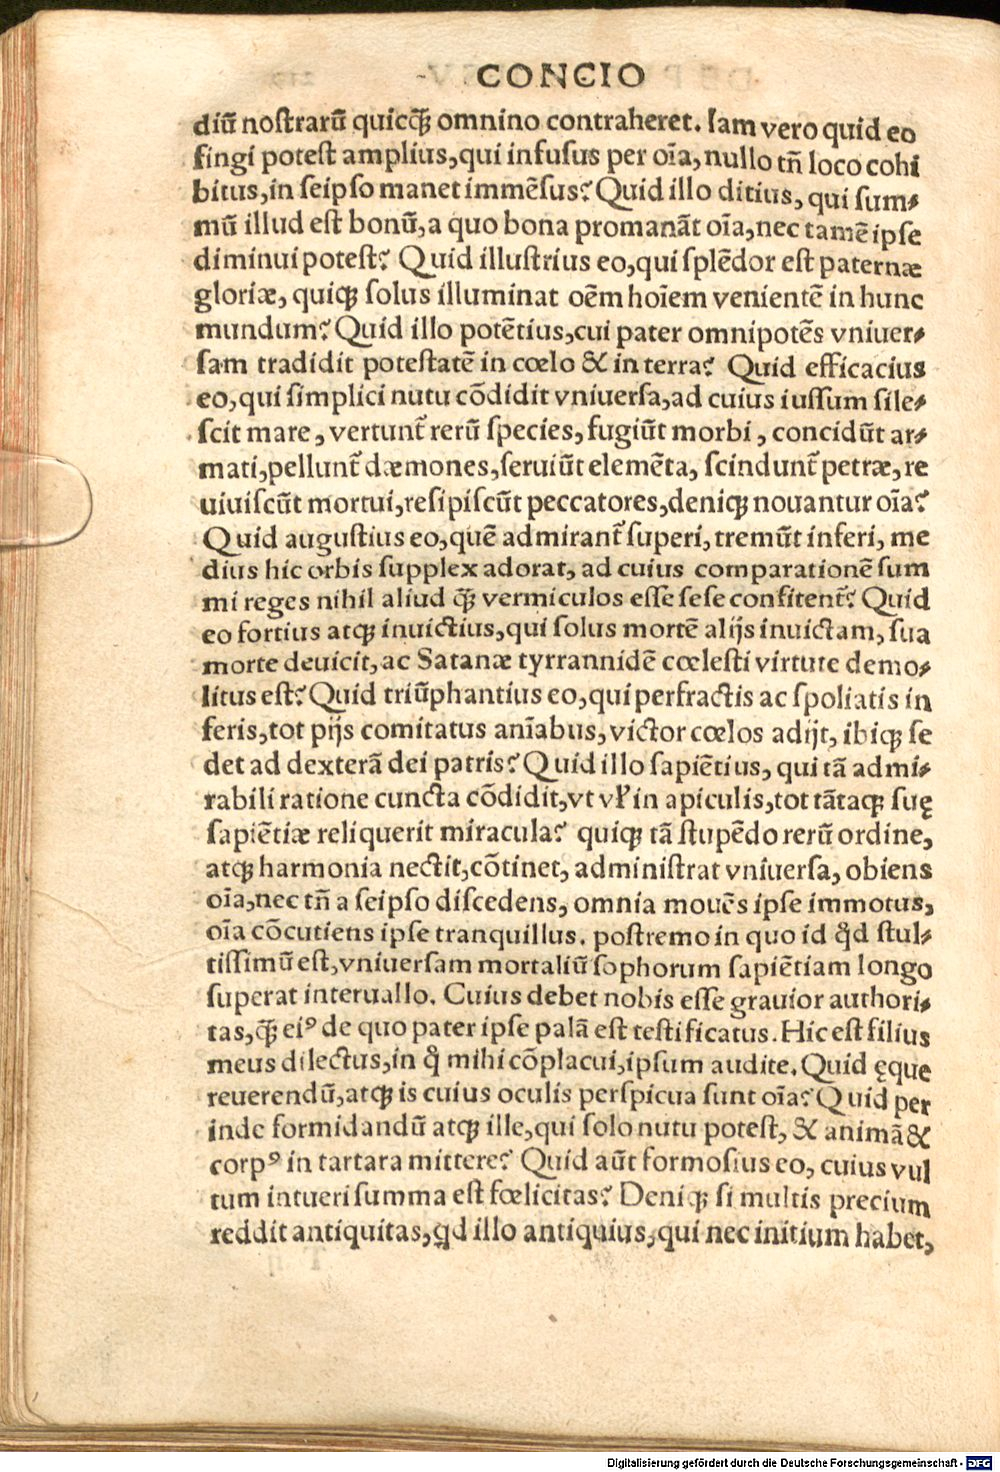 CONCIO
diū noſtrarū quicꝗ̄ omnino contraheret. Iam vero quid eo
fingi poteſt amplius, qui infuſus per oīa, nullo tñ loco cohi
bitus, in ſeipſo manet immēſus? Quid illo ditius, qui ſum⸗
mū illud eſt bonū, a quo bona promanāt oīa, nec tamē ipſe
diminui poteſt? Quid illuſtrius eo, qui ſplēdor eſt paternæ
gloriæ, quiqꝫ ſolus illuminat oēm hoīem venientē in hunc
mundum? Quid illo potētius, cui pater omnipotēs vniuer⸗
ſam tradidit poteſtatē in cœlo & in terra? Quid efficacius
eo, qui ſimplici nutu cōdidit vniuerſa, ad cuius iuſſum ſile⸗
ſcit mare, vertunt᷑ rerū ſpecies, fugiūt morbi, concidūt ar⸗
mati, pellunt᷑ dæmones, ſeruiūt elemēta, ſcindunt᷑ petræ, re
uiuiſcūt mortui, reſipiſcūt peccatores, deniqꝫ nouantur oīa?
Quid auguſtius eo, quē admirant᷑ ſuperi, tremūt inferi, me
dius hic orbis ſupplex adorat, ad cuius comparationē ſum
mi reges nihil aliud ꝗ̄ vermiculos eſſe ſeſe confitent᷑? Quid
eo fortius atqꝫ inuictius, qui ſolus mortē alijs inuictam, ſua
morte deuicit, ac Satanæ tyrrannidē cœleſti virtute demo⸗
litus eſt? Quid triūphantius eo, qui perfractis ac ſpoliatis in
feris, tot pijs comitatus anīabus, victor cœlos adijt, ibiqꝫ ſe
det ad dexterā dei patris? Quid illo ſapiētius, qui tā admi⸗
rabili ratione cuncta cōdidit, vt vl̓ in apiculis, tot tātaqꝫ ſuę
ſapiētiæ reliquerit miracula? quiqꝫ tā ſtupēdo rerū ordine,
atqꝫ harmonia nectit, cōtinet, adminiſtrat vniuerſa, obiens
oīa, nec tñ a ſeipſo diſcedens, omnia mouēs ipſe immotus,
oīa cōcutiens ipſe tranquillus. poſtremo in quo id qd̓ ſtul⸗
tiſſimū eſt, vniuerſam mortaliū ſophorum ſapiētiam longo
ſuperat interuallo. Cuius debet nobis eſſe grauior authori⸗
tas, ꝗ̄ eiꝰ de quo pater ipſe palā eſt teſtificatus. Hic eſt filius
meus dilectus, in q̓ mihi cōplacui, ipſum audite. Quid ęque
reuerendū, atqꝫ is cuius oculis perſpicua ſunt oīa? Quid per
inde formidandū atqꝫ ille, qui ſolo nutu poteſt, & animā &
corpꝰ in tartara mittere? Quid aūt formoſius eo, cuius vul
tum intueri ſumma eſt fœlicitas? Deniqꝫ ſi multis precium
reddit antiquitas, qd illo antiquius, qui nec initium habet,
Digitalisierung gefördert durch die Deutsche Forschungsgemeinschaft - DFG